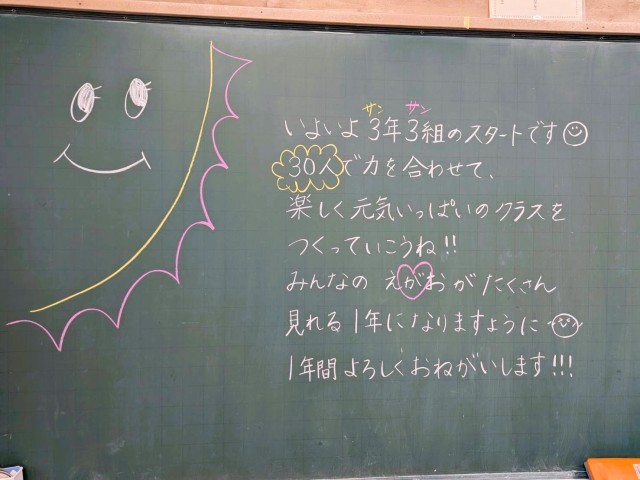 サン サン
いよいよ 3年3組のスタートです
30人で力を合わせて、
楽しく元気いっぱいのクラスを
つくっていこうね!!
みんなの えがおがたくさん
見れる1年になりますように
1年間よろしくおねがいします!!!